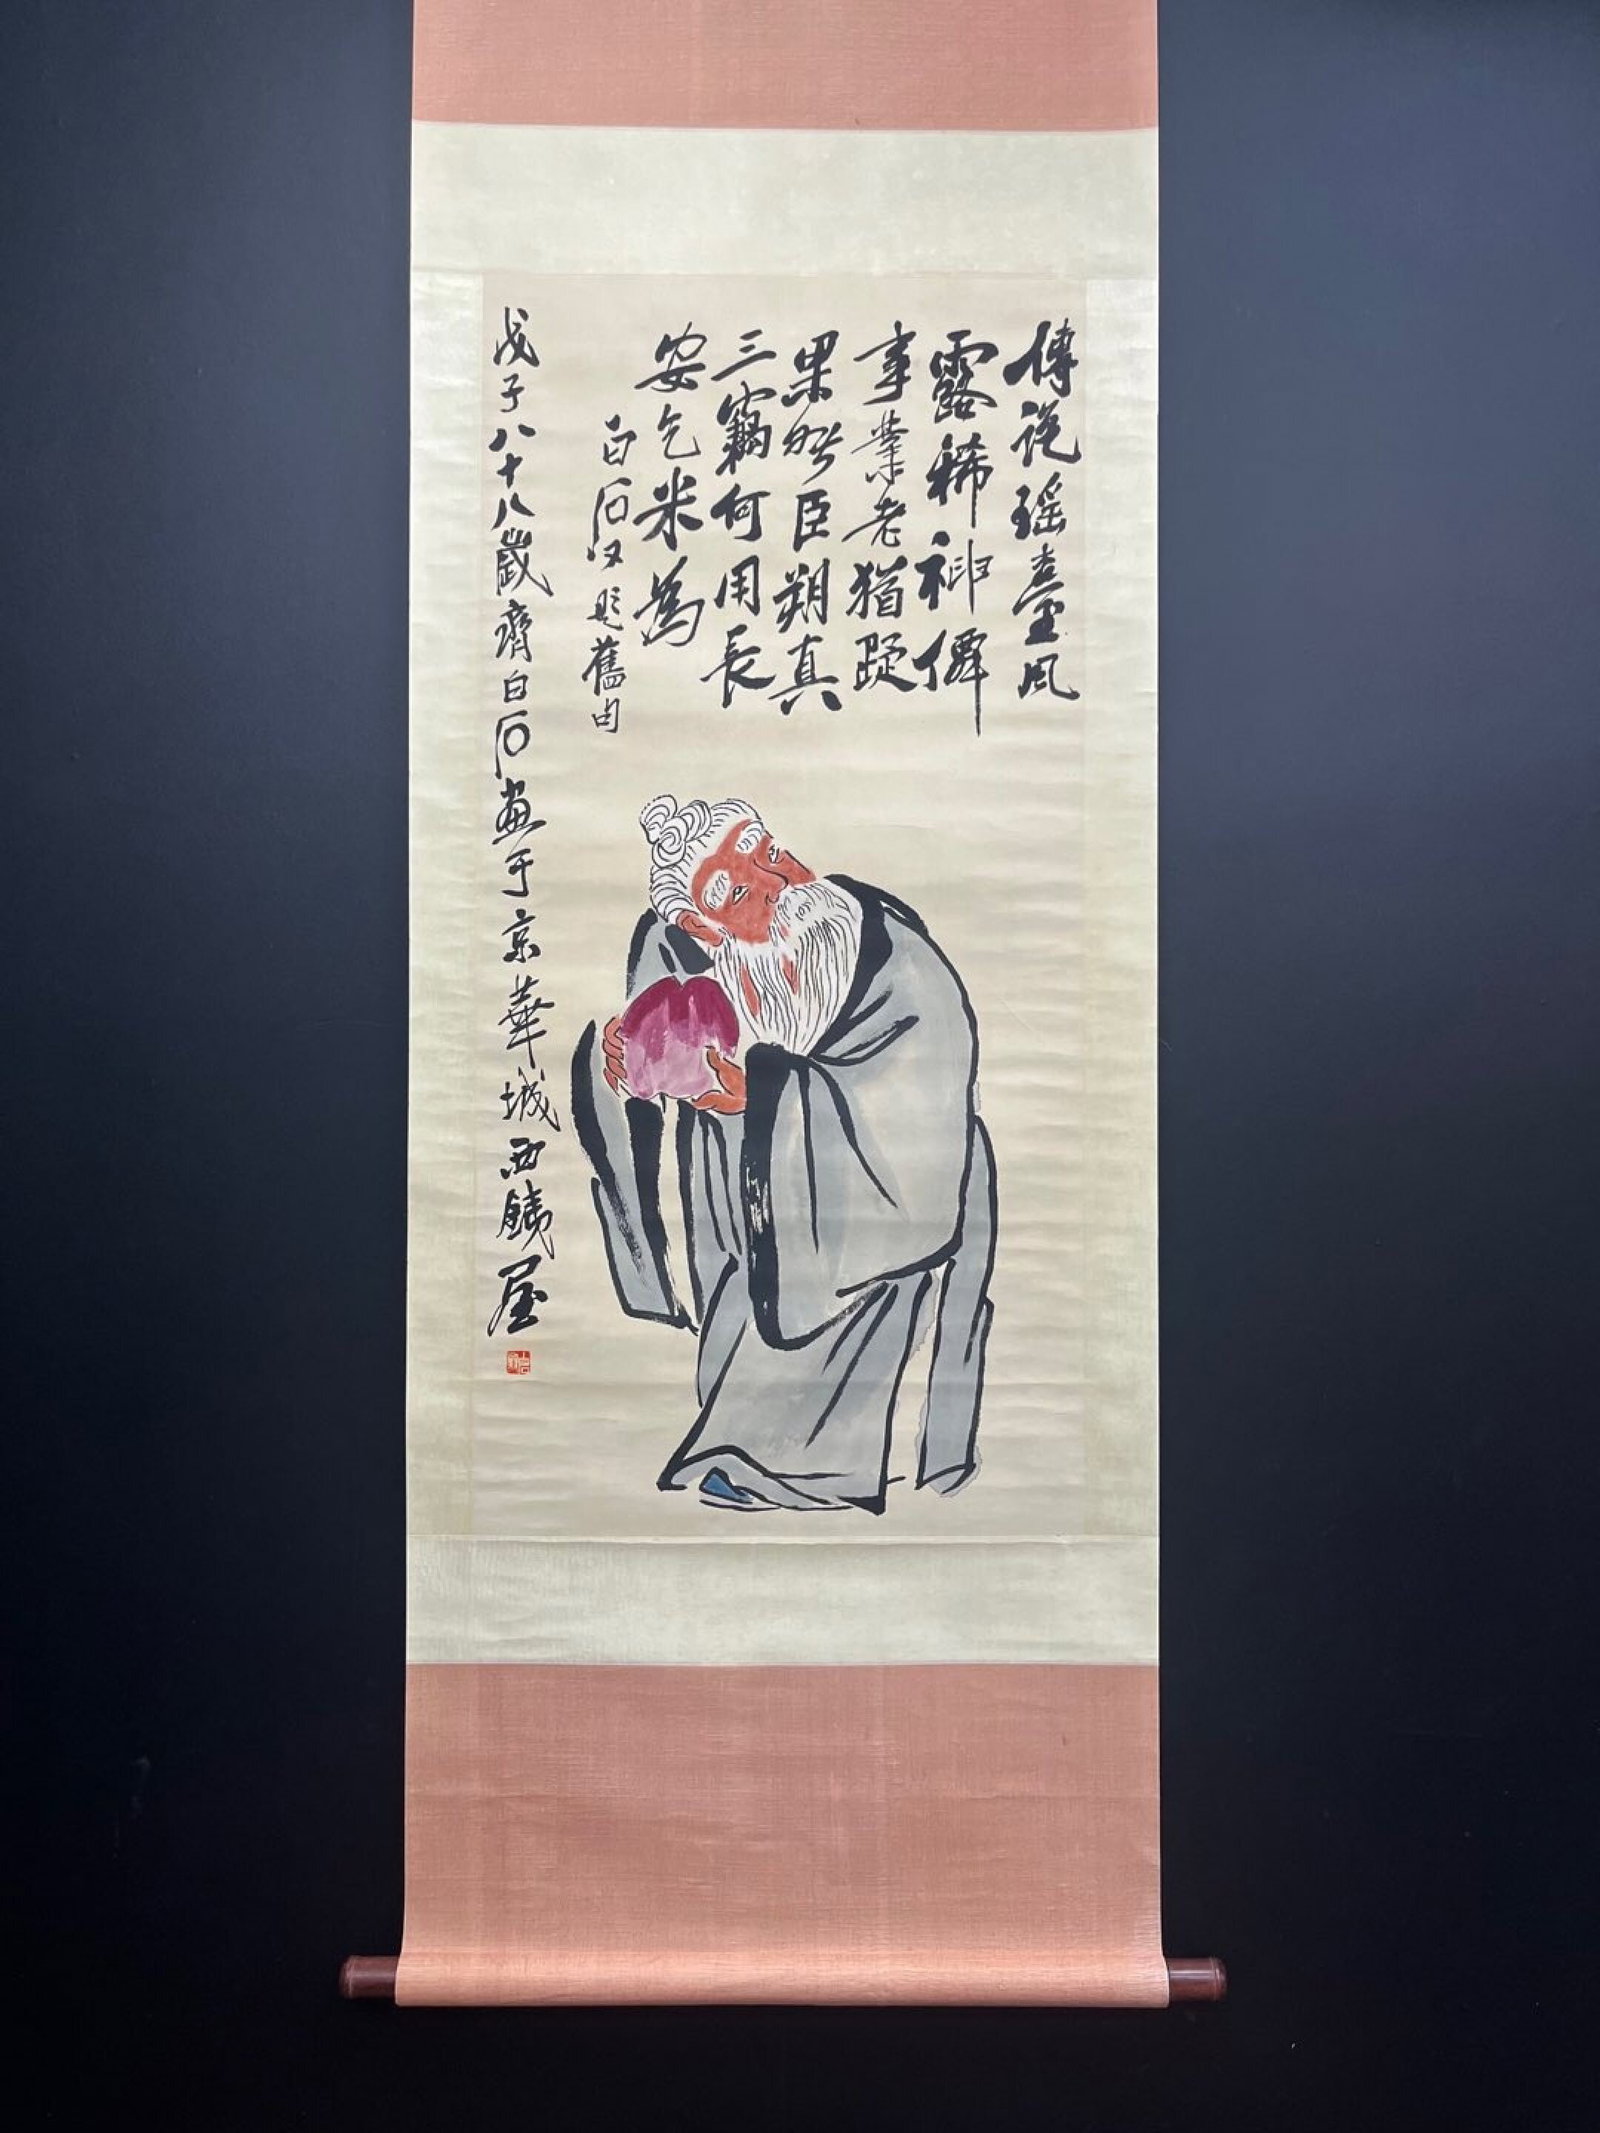 傳說瑤臺風
露稀神僊
事業老猶疑
果然臣朔真
三竊何用長
安乞米為
白石又題舊句
戊子八十八歲齊白石畫于京華城西鐵屋